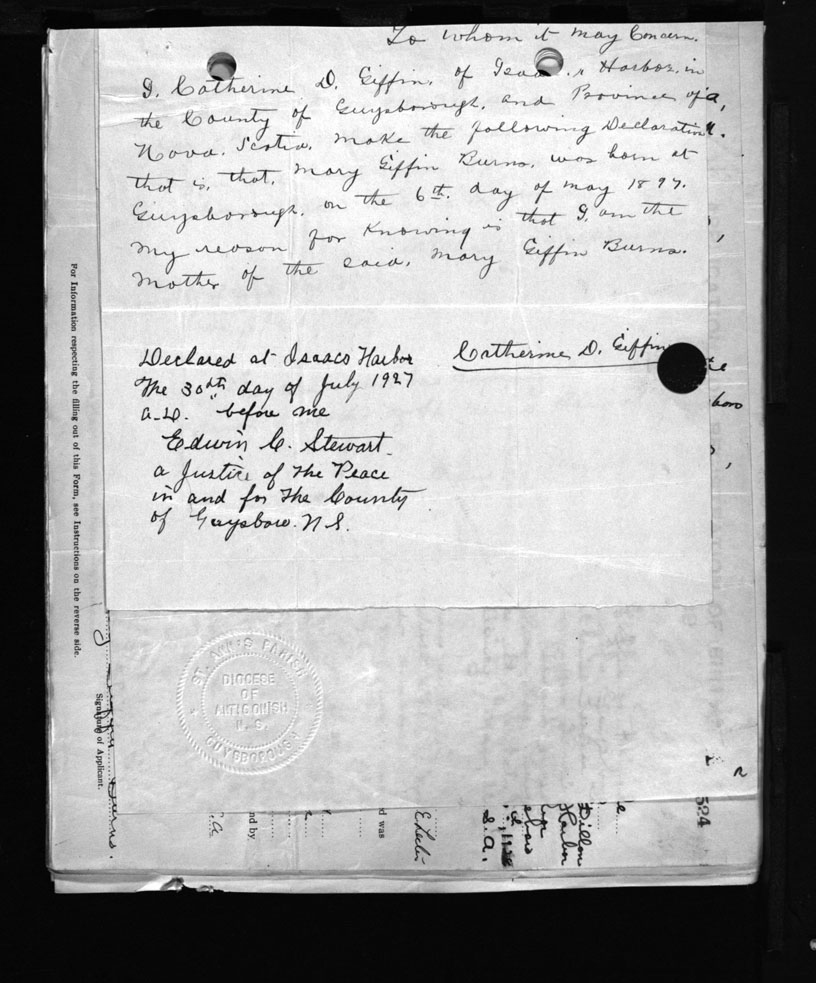 To whom it may Concern.
I. Catherine D. Giffin, of Isaa r Harbor, in
the County of Guysborough, and Province of
Nova. Scotia, make the following Declaration.
that is, that, Mary Giffin Burns, was born at
Guysborough, on the 6th. day of may 1897.
My reason for Knowing is that I. am the
Mother of the said, Mary Giffin Burns.
Catherine D. Giffin
Declared at Isaacs Harbor
The 30th day of July 1927
A.D. before me
Edwin C. Stewart
a Justice of The Peace
in and for The County
of Guysboro. N.S.
For Information respecting the filling out of this Form, see Instructions on the reverse side.
Signature of Applicant.
Burns.
ST. ANN'S PARISH
DIOCESE
OF
ANTIGONISH
N. S.
GUYSBOROUGH
nd by
d was
Dillon
Harbor
S.A.
524